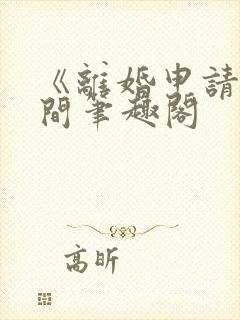 《離婚申請
間筆趣閣
高昕